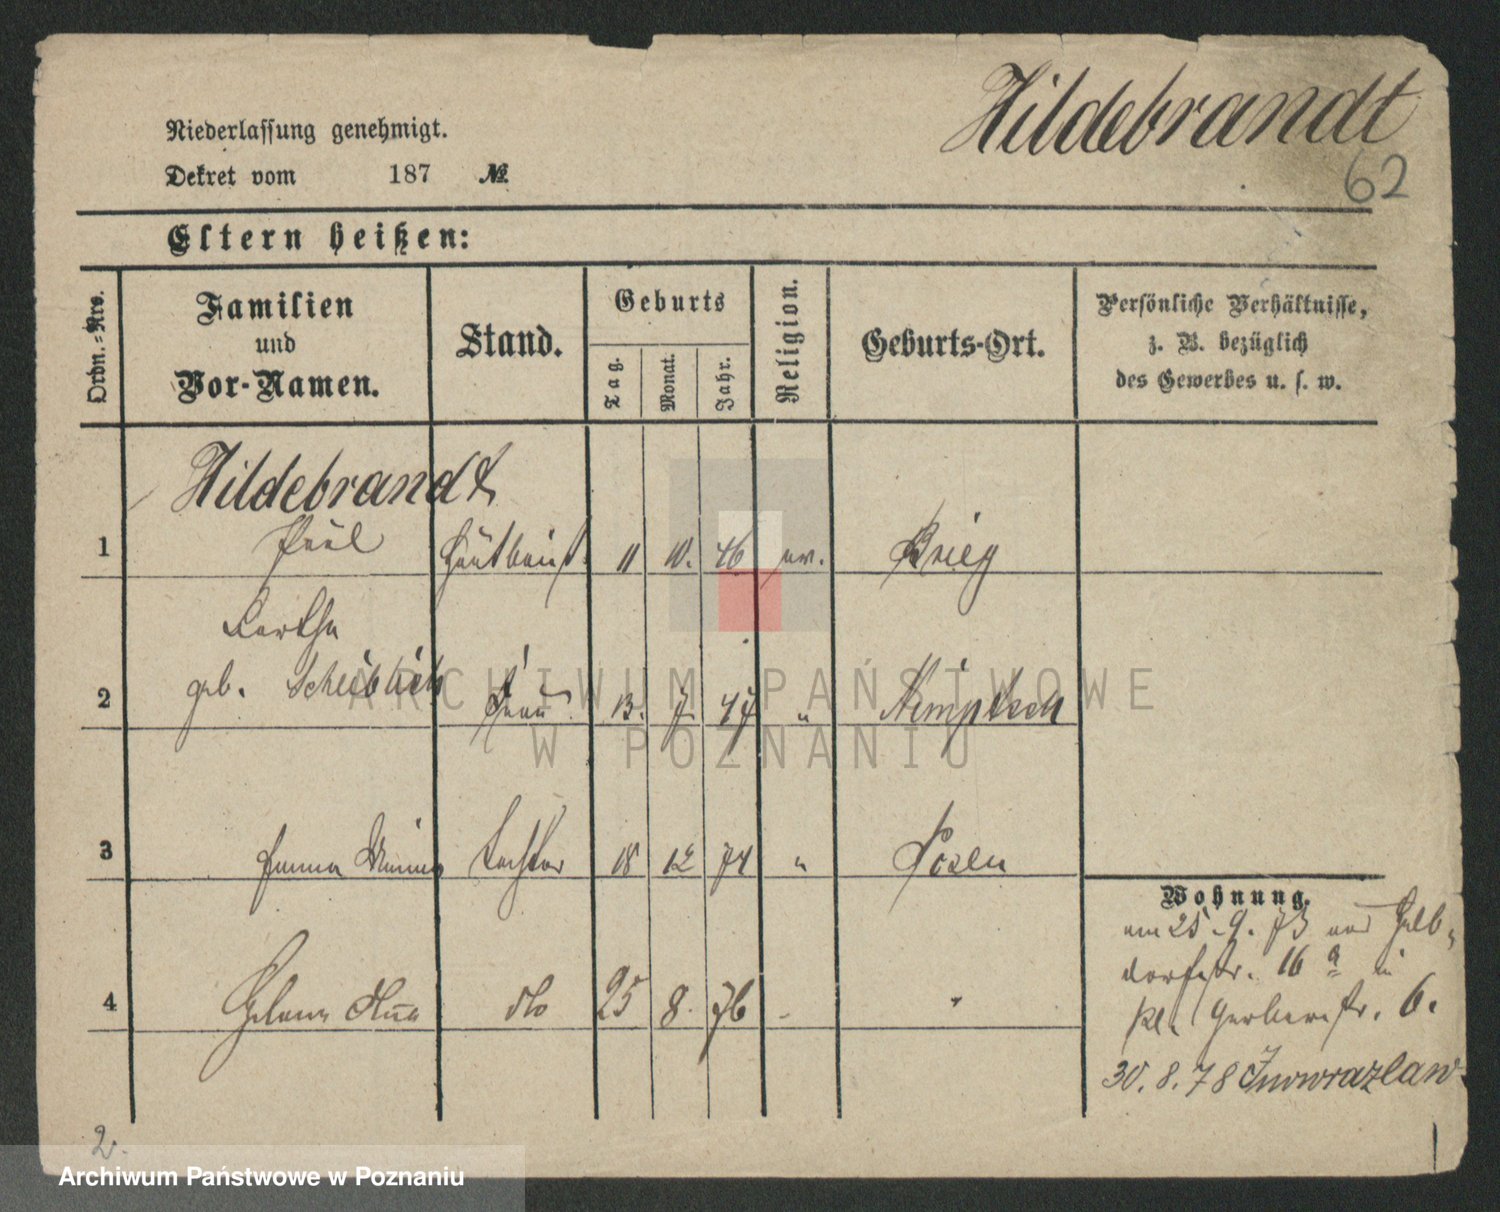 Hildebrandt
62
Niederlassung genehmigt.
Dekret vom 187 №
Eltern heißen:
Ordn.-Nro.
Familien und Vor-Namen.
Stand.
Geburts
Tag.
Monat.
Jahr.
Religion.
Geburts-Ort.
Persönliche Verhältnisse,
z. B. bezüglich
des Gewerbes u. s. w.
Hildebrandt
1 Paul Hautboist 11 10. 46 ev. Brieg
Bertha
2 geb. Scheiblich Frau 13. 7. 47 " Nimptsch
3 Emma Minna Tochter 18 12 74 " Posen
4 Helene do 25 8. 76
Wohnung.
am 25. 9. 73 von Halb-
dorfstr. 16 a in
kl. Gerberstr. 6.
30. 8. 78 Inowrazlaw
2.
ARCHIWUM PAŃSTWOWE
W POZNANIU
Archiwum Państwowe w Poznaniu